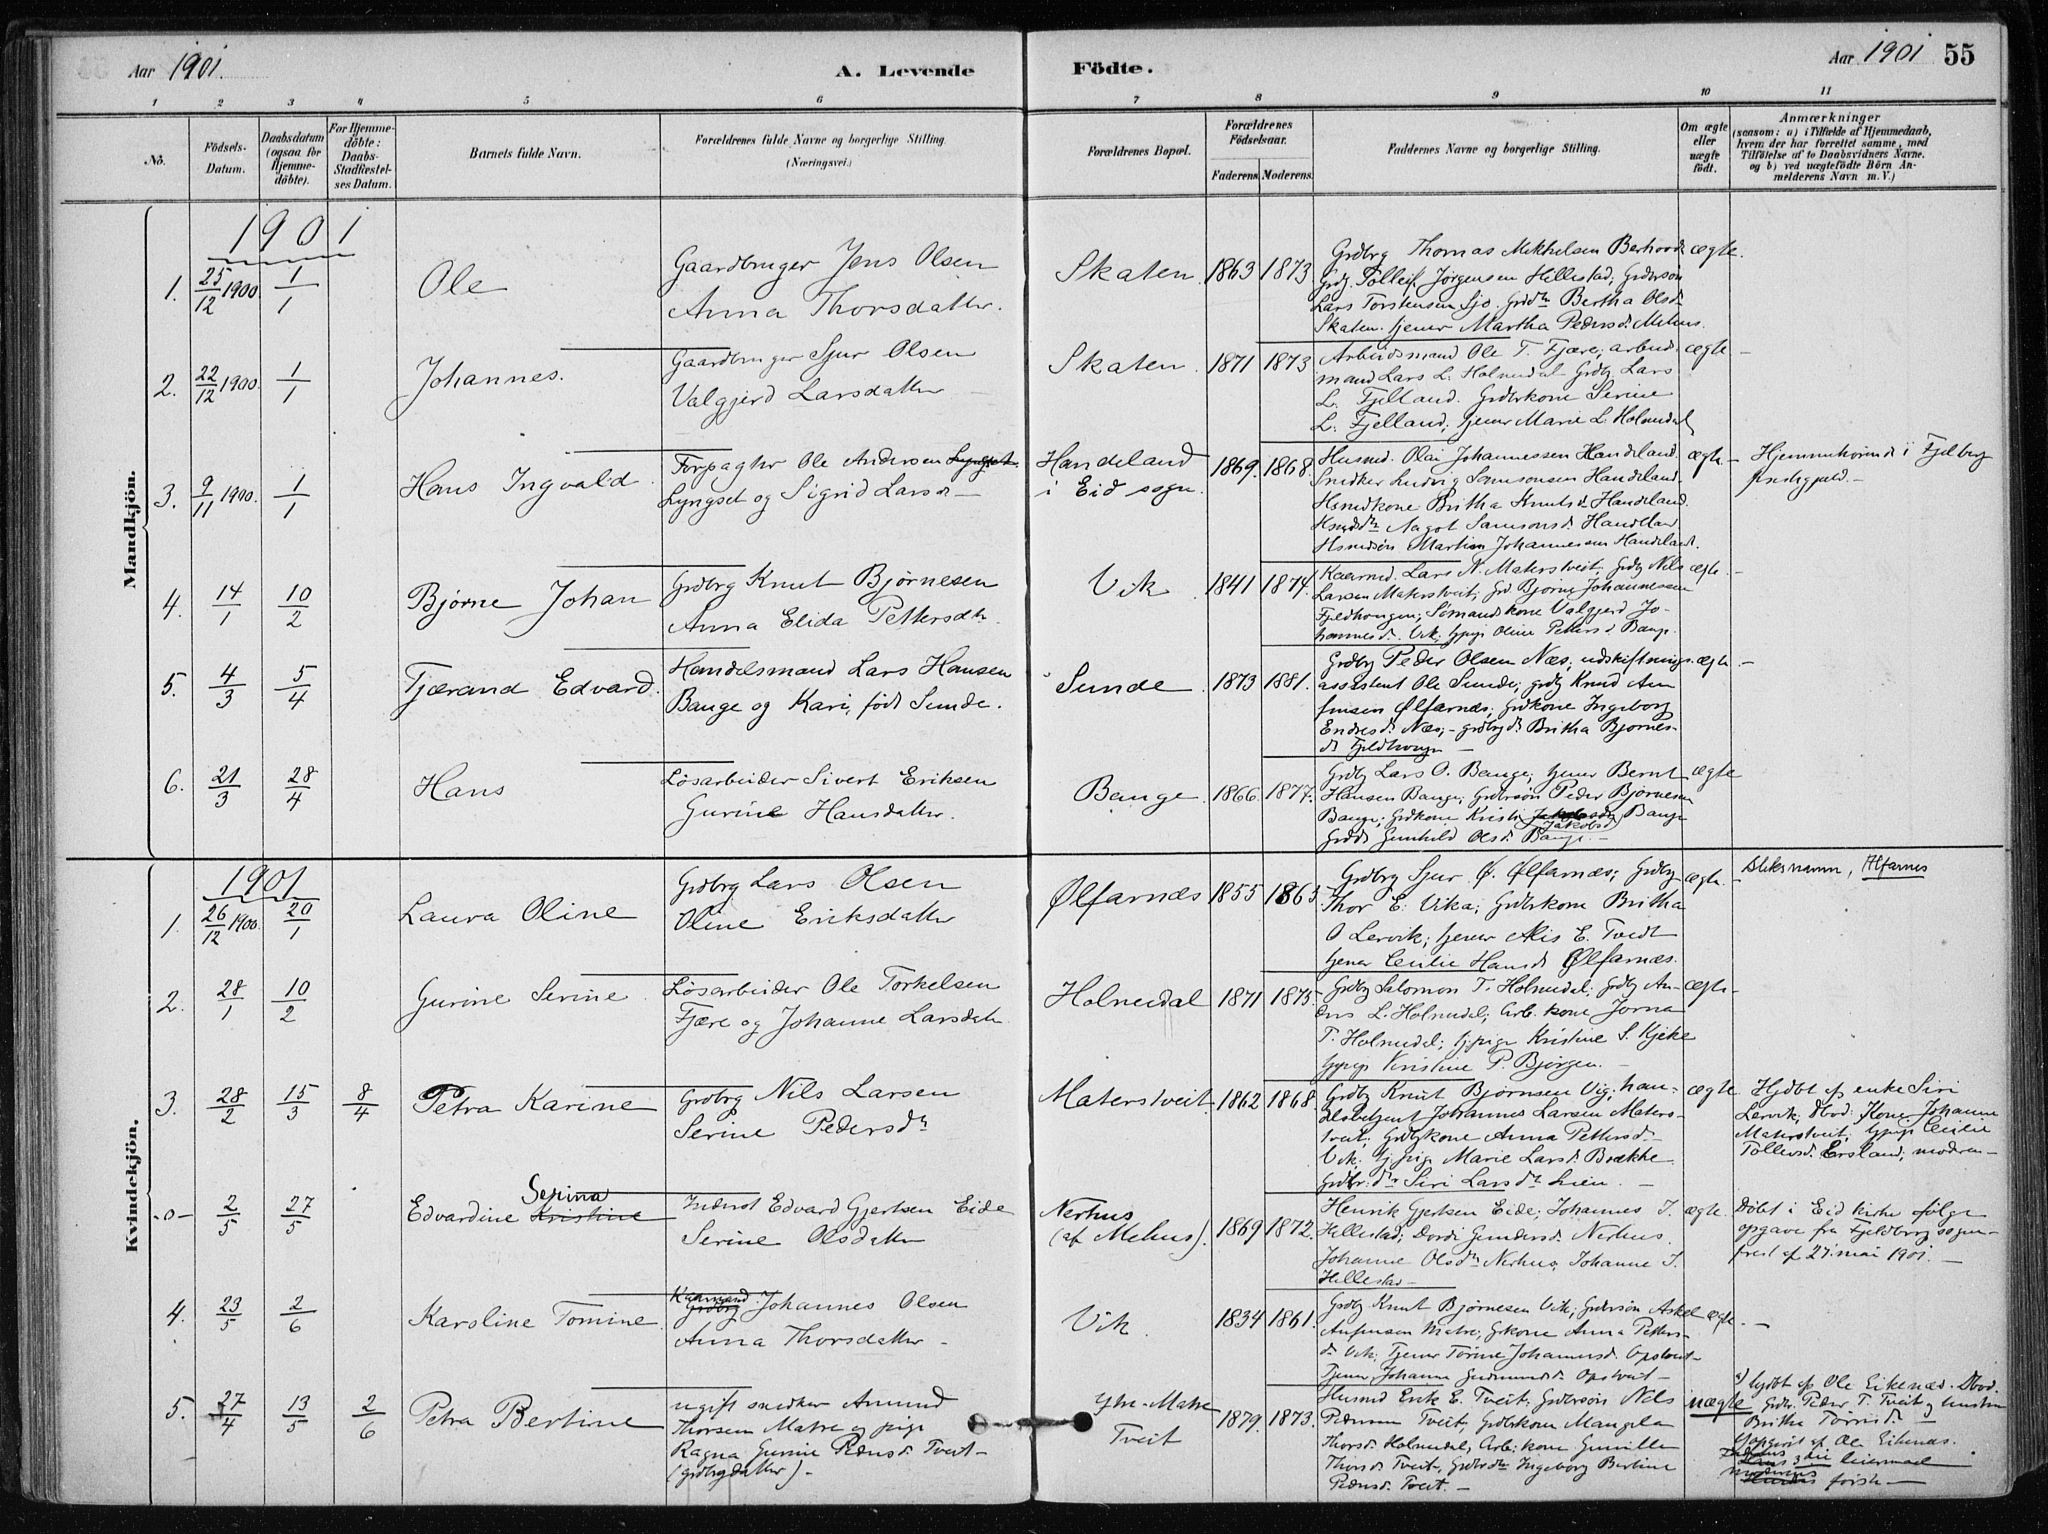 Aar 1901.
A. Levende
Födte.
Aar 1901 55
1 2 3 4 5 6 7 8 9 10 11
No.
Födsels-
Datum.
Daabsdatum
(ogsaa för
Hjemme-
döbte).
For Hjemme-
döbte:
Daabs-
Stadfæstel-
ses Datum.
Barnets fulde Navn.
Forældrenes fulde Navne og borgerlige Stilling
(Næringsvei.)
Forældrenes Bopæl.
Forældrenes
Födselsaar.
Faderens. Moderens.
Faddernes Navne og borgerlige Stilling.
Om ægte
eller
uægte
födt.
Anmærkninger
(saasom: a) i Tilfælde af Hjemmedaab,
hvem der har forrettet samme, med
Tilföielse af to Daabsvidners Navne.
og b) ved uægtefödte Börn An-
melderens Navn m. V.)
Mandkjön.
1901
1. 25/12 1900. 1/1
Ole
Gaardbruger Jens Olsen
Anna Thorsdatter.
Skaten. 1863 1873
Grdbrg Thomas Mikkelsen
Tolleif Jørgensen Hillestad; Grdbrsøn
Lars Torstensen Sjo. Bertha Olsd.
Skaten. tjener Martha Pedersd. Mehus.
ægte.
2. 22/12 1900. 1/1
Johannes.
Gaardbruger Sjur Olsen
Valgjerd Larsdatter
Skaten. 1871 1873
Arbeidsmand Ole T. Fjære; arbeid.
mand Lars L. Holmedal Grdbg Lars
L. Fjelland. Grdbrkone Serine
L. Fjelland; tjener Marie L. Holmedal
ægte
3. 9/11 1900. 1/1
Hans Ingvald.
Forpagter Ole Andersen Lyngset.
Lyngset og Sigrid Larsd.
Handeland
i Eid sogn.
1869. 1868
Husmd. Olai Johannessen Handeland.
Snedker Ludvig Samsonsen Handeland.
Hsmdkone Britha Knutsd. Handeland.
Nagot Samsonsd. Handeland
Hsmdsøn Martin Johannesen Handeland.
ægte.
Hjemmehørende i Fjelberg
præstegjeld.
4. 14/1 10/2
Bjørne Johan
Grdbrg Knut Bjørnesen
Anna Elida Pettersdtr.
Vik 1841 1874.
Kaarmd. Lars N. Materstveit, Grdbg Nils
Larsen Materstveit; Bjørne Johannessen
Fjeldhougen; Sømandskone Valgjerd Jo-
hannesd. Vik; tjpige Oline Pettersd. Bauge.
ægte.
5. 4/3 5/4
Tjærand Edvard.
Handelsmand Lars Hansen
Bauge og Kari, født Sunde.
Sunde 1873 1881.
Grdbg Peder Olsen Næs; udskiftnings-
assistent Ole Sunde; grdbg Knud Am
finsen Ølfarnæs; Grdkone Ingeborg
Endresd. Næs; - grdbrgd. Britha Bjørnes-
d. Fjeldhougen
ægte.
6. 21/3 28/4
Hans
Løsarbeider Sivert Eriksen
Gurine Hansdatter.
Bauge 1866. 1877.
Grdbg Lars O. Bauge; tjener Bernt
Hansen Bauge; Grdbrsøn Peder Bjørnesen
Bauge; Grdkone Jakobsd. Bauge
Gunhild Olsd. Bauge.
ægte
Kvindekjön.
1901
1. 26/12 1900. 20/1
Laura Oline
Grdbrg Lars Olsen
Oline Eriksdatter
Ølfarnæs 1855 1863.
Grdbrg Sjur Ø. Ølfarnæs; Grdbg
Thor E. Vika; Grdbrkone Britha
O Lervik; tjener Nils E. Tvedt
tjener Cecilie Hansd. Ølfarnæs.
ægte.
Slektsnavn, Ølfarnes
2. 28/1 10/2
Gurine Serine
Løsarbeider Ole Torkelsen
Fjære og Johanne Larsdatter
Holmedal 1871 1875.
Grdbg Salomon T. Holmedal; Grdbg An-
ders L. Holmedal; Arb. kone Jorna
T. Holmedal; tjpige Kristine S. Kjeke
tjpige Kristine P. Bjørgen.
ægte.
3. 28/2 15/3 8/4
Petra Karine
Grdbrg Nils Larsen
Serine Pedersdtr
Matersveit 1862 1868.
Grdbg Knut Bjørnsen Vig; han-
delsbetjent Johannes Larsen Maters-
tveit; Grdbrkone Anna Pettersd.
Vik; tjpige Marie Larsd. Brekke
Grdbr.dtr Siri Larsdtr Lien.
ægte.
Hjdbt af enke Siri
Lervik; dbvd: Kone Johanne
Matersveit; tjpige Cecilie
Tollevsd. Ersland; modren
-o- 2/5 27/5
Edvardine Kristine Serina
Inderst Edvard Gjertsen Eide
Serine Olsdatter
Nerhus
(af Mehus).
1869 1872.
Henrik Gjertsen Eide; Johannes T.
Hellestad; Dordi Gundersd. Nerhus.
Johanne Olsdtr Nerhus, Johanne T.
Hellestad
ægte.
Døbt i Eid kirke ifølge
opgave fra Fjeldberg sogne-
prest af 27. mai 1901.
4. 23/5 2/6
Karoline Tomine
Kaarmand Grdbrg Johannes Olsen
Anna Thorsdatter
Vik. 1834 1861.
Grdbg Knut Bjørnesen Vik; Grdbrsøn Askel
Anfinsen Matre; Grkone Anna Petters-
d. Vik; Tjener Tørine Johannesd. Opstveit
Tjener Johanne Gudmundsd. Opstveit
ægte.
5. 27/4 13/5 2/6
Petra Bertine
ugift snedker Amund
Thorsen Matre og pige
Ragna Gurine Pedersd. Tveit
(grdbrgdatter).
Ytre-Matre
Tveit
1879. 1873.
Husmd Erik E. Tveit; Grdbrsøn Nils
Pedersen Tveit; Grdbrkone Mangela
Thorsd. Holmedal; Arb: kone Gunille
Thorsd. Tveit; Grdbrdtr Ingeborg Bertine
Pedersd. Tveit.
uægte
a) hjdbt af Ole Eikenæs. Dbvd.
Peder T. Tveit og hustru
Britha Tørrisd.
Opgivet af Ole Eikenæs.
Faderens 3die leiermaal
moderens første